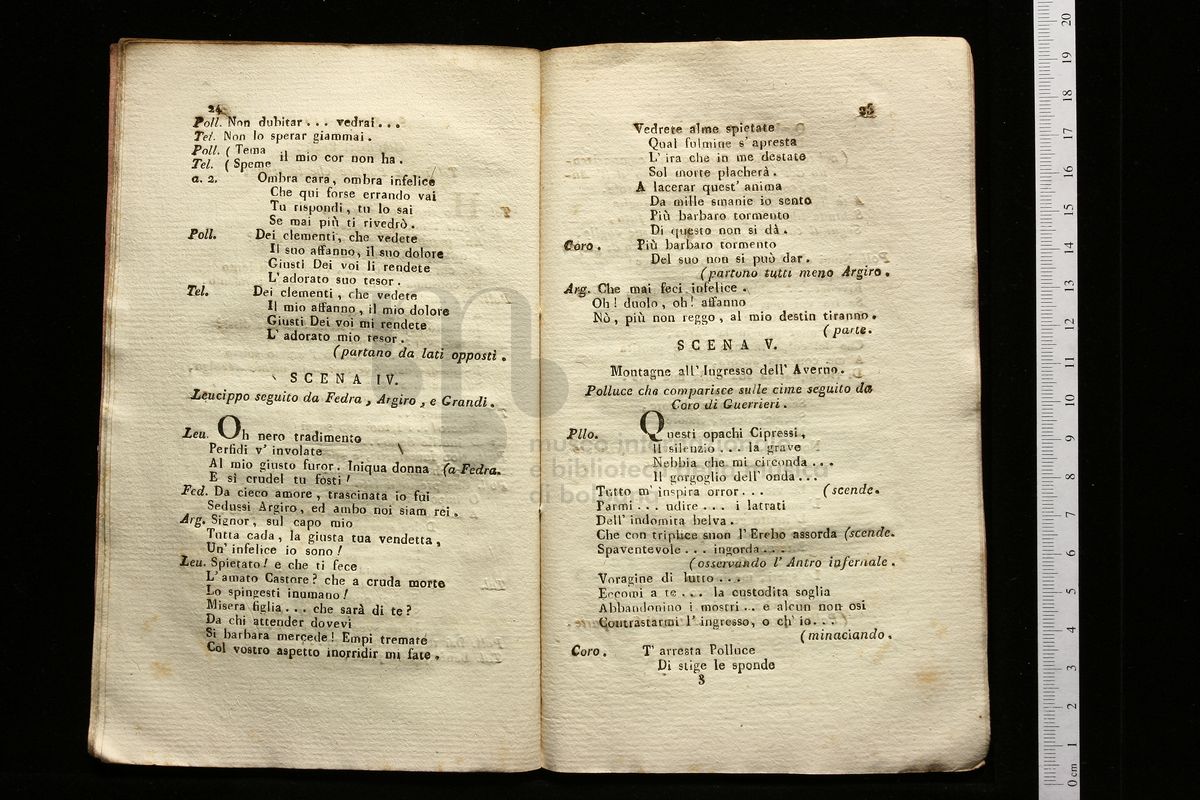 24
Poll. Non dubitar . . . vedrai . . .
Tel. Non lo sperar giammai .
Poll. ( Tema
il mio cor non ha .
Tel. ( Speme
a. 2. Ombra cara, ombra infelice
Che qui forse errando vai
Tu rispondi, tu lo sai
Se mai più ti rivedrò .
Poll. Dei clementi, che vedete
Il suo affanno, il suo dolore
Giusti Dei voi li rendete
L' adorato suo tesor .
Tel. Dei clementi , che vedete
Il mio affanno , il mio dolore
Giusti Dei voi mi rendete
L' adorato mio tesor .
(partano da lati opposti .
SCENA IV.
Leucippo seguito da Fedra , Argiro , e Grandi .
Leu. Oh nero tradimento
Perfidi v' involate
Al mio giusto furor. Iniqua donna (a Fedra.
E sì crudel tu fosti !
Fed. Da cieco amore , trascinata io fui
Sedussi Argiro, ed ambo noi siam rei .
Arg. Signor, sul capo mio
Tutta cada, la giusta tua vendetta ,
Un' infelice io sono !
Leu. Spietato ! e che ti fece
L' amato Castore ? che a cruda morte
Lo spingesti inumano !
Misera figlia . . . che sarà di te ?
Da chi attender dovevi
Sì barbara mercede ! Empi tremate
Col vostro aspetto inorridir mi fate .
25
Vedrete alme spietate
Qual fulmine s' apresta
L' ira che in me destate
Sol morte placherà .
A lacerar quest' anima
Da mille smanie io sento
Più barbaro tormento
Di questo non si dà .
Coro . Più barbaro tormento
Del suo non si può dar .
(partono tutti meno Argiro .
Arg. Che mai feci infelice .
Oh ! duolo , oh ! affanno
Nò , più non reggo , al mio destin tiranno .
( parte .
SCENA V.
Montagne all' Ingresso dell' Averno .
Polluce che comparisce sulle cime seguito da
Coro di Guerrieri .
Pllo. Questi opachi Cipressi ,
Il silenzio . . . la grave
Nebbia che mi circonda . . .
Il gorgoglio dell' onda . . .
Tutto m' inspira orror . . . (scende .
Parmi . . . udire . . . i latrati
Dell' indomita belva .
Che con triplice suon l' Erebo assorda (scende.
Spaventevole . . . ingorda . . . .
(osservando l' Antro infernale .
Voragine di lutto . . .
Eccomi a te . . . la custodita soglia
Abbandonino i mostri . . e alcun non osi
Contrastarmi l' ingresso, o ch' io . . .
(minaciando .
Coro . T' arresta Polluce
Di stige le sponde
3
museo internazionale
e biblioteca della musica
di bologna
0 cm 1 2 3 4 5 6 7 8 9 10 11 12 13 14 15 16 17 18 19 20